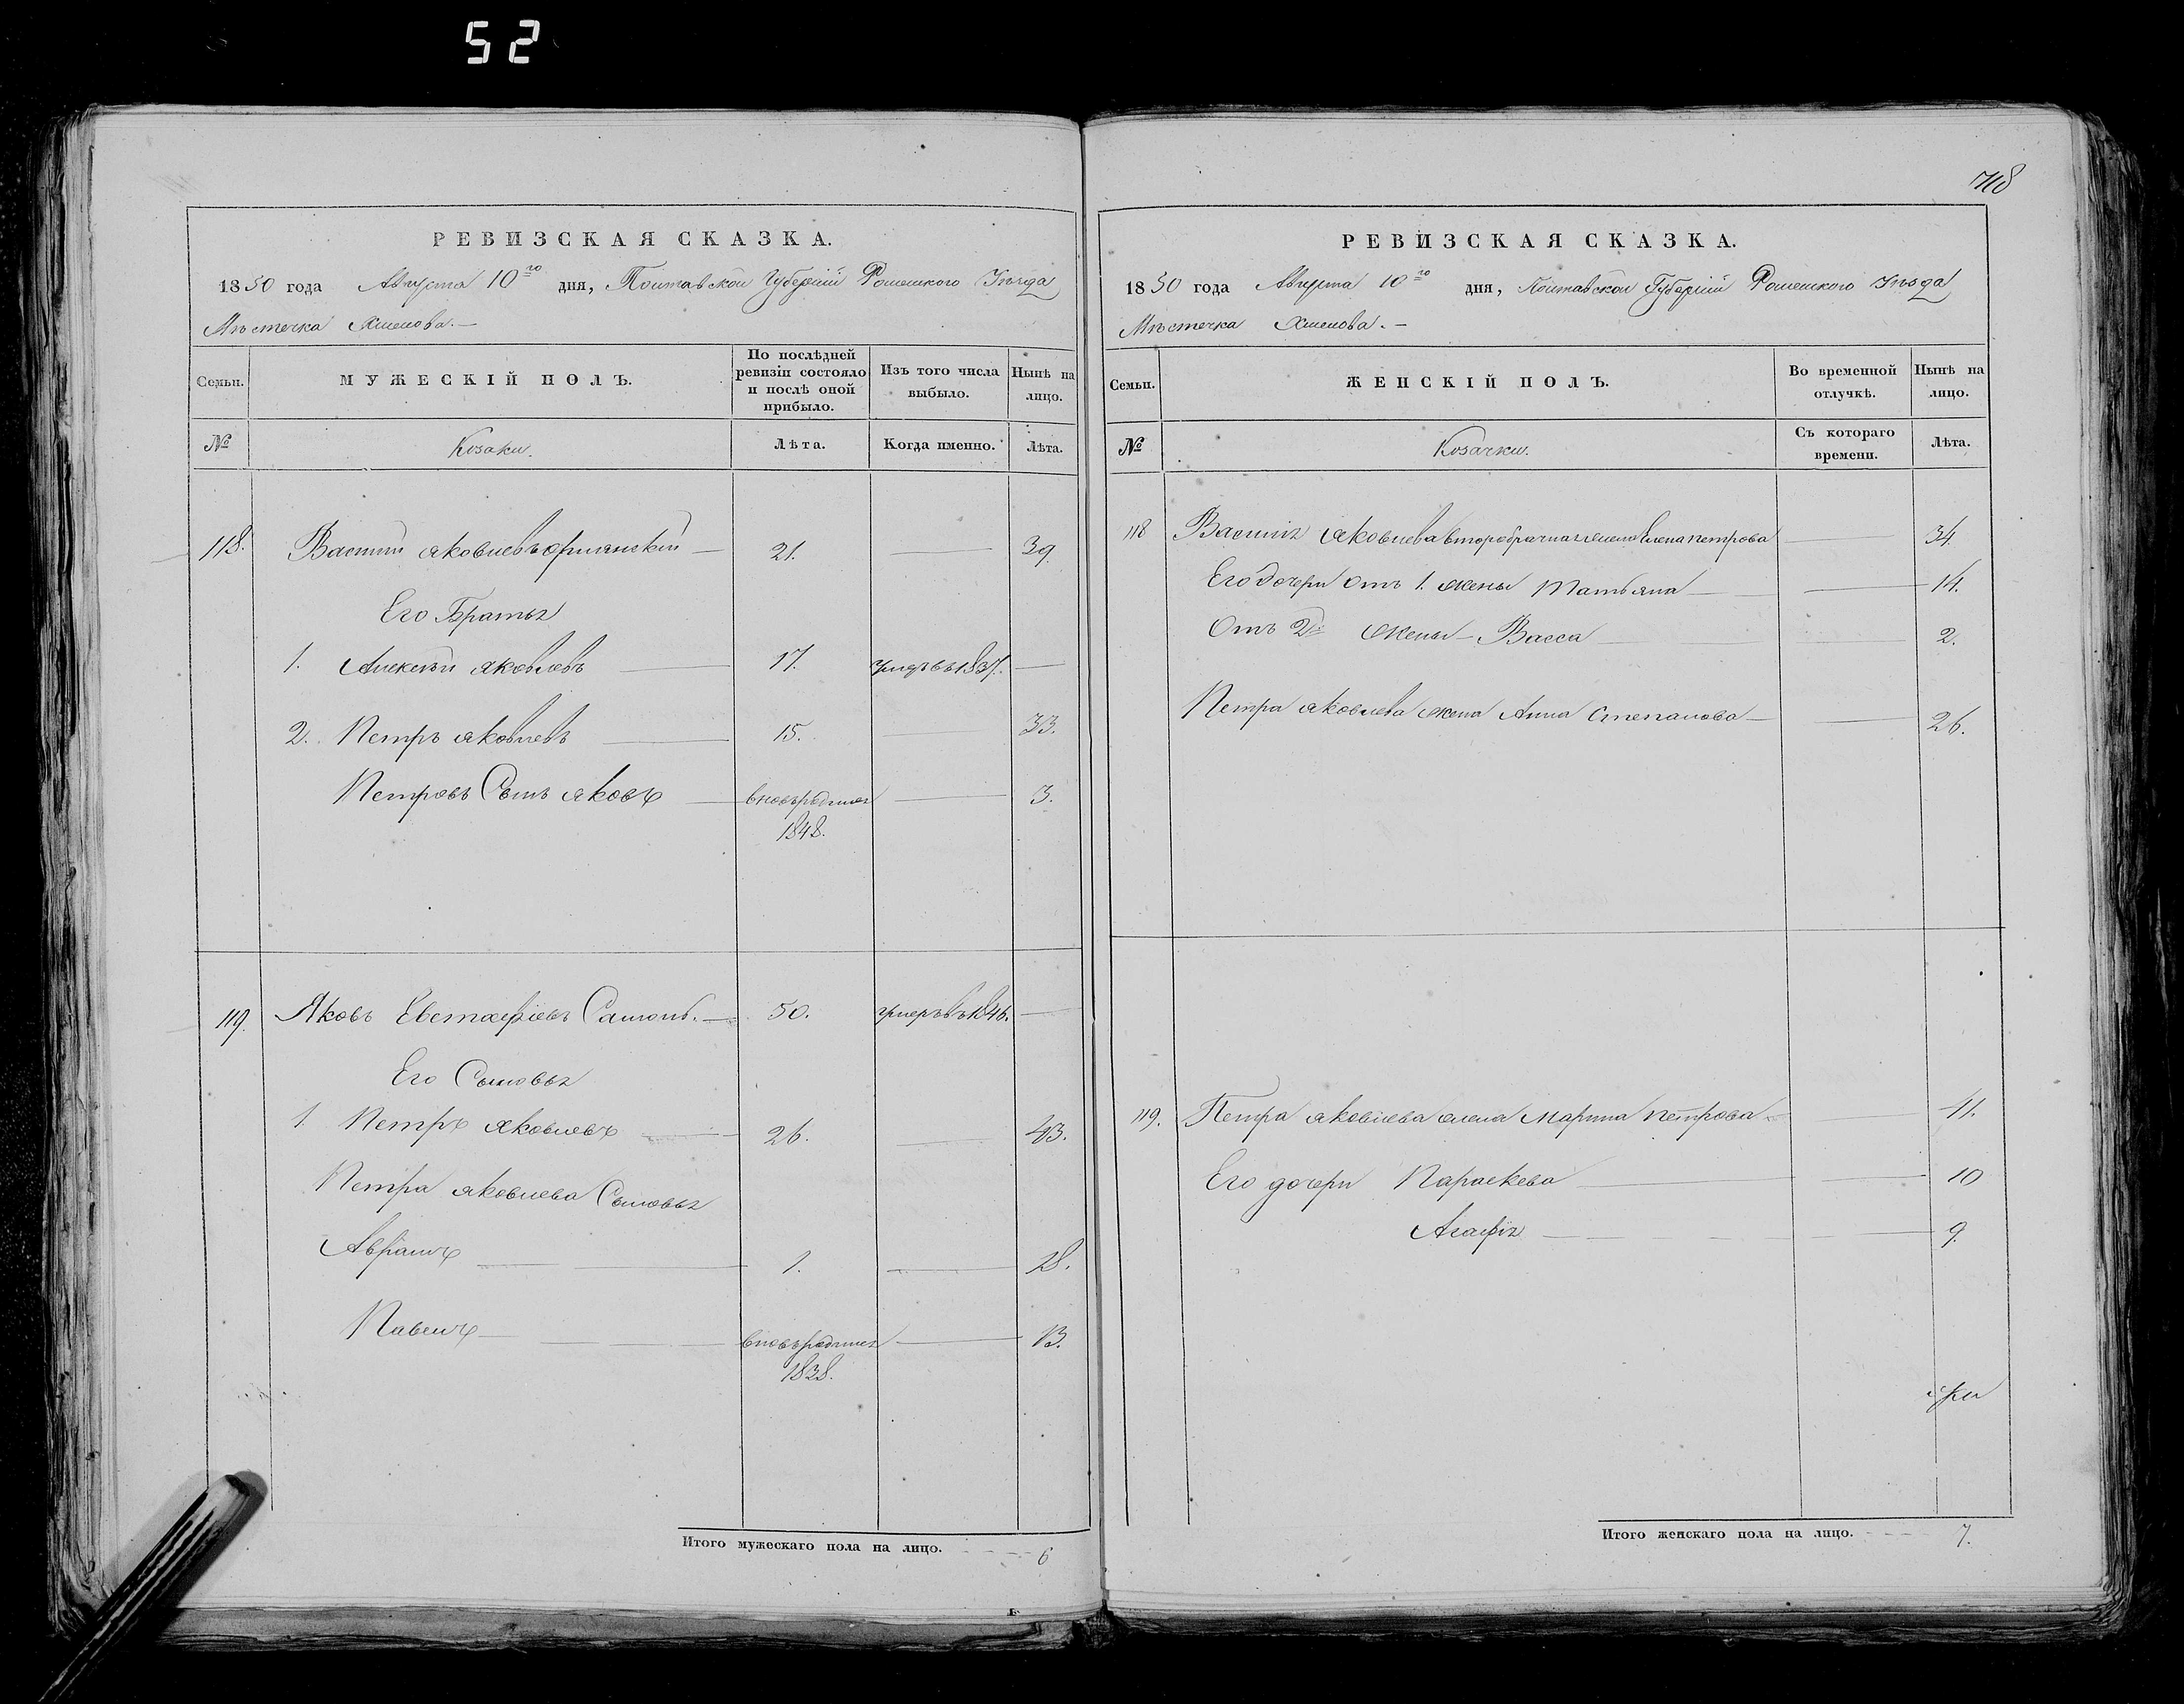 52
РЕВИЗСКАЯ СКАЗКА.
1850 года Августа 10го дня, Полтавской Губерніи Роменского Уѣзда
Мѣстечка Хмелова. —
Семьи.
МУЖЕСКІЙ ПОЛЪ.
По послѣдней ревизіи состояло и послѣ оной прибыло.
Изъ того числа выбыло.
Нынѣ на лицо.
№
Козаки.
Лѣта.
Когда именно.
Лѣта.
118. Василій Яковлевъ 21. 39.
Его Братья
1. Алексѣй Яковлевъ 17. 1837.
2. Петръ Яковлевъ 15. 33.
Петровъ Сынъ Яковъ вновьродился 3.
1848.
119. Яковъ Евстафіевъ 50. умеръ въ 1846.
Его Сыновья
1. Петръ Яковлевъ 26. 43.
Петра Яковлева Сыновья
Аврамъ 1. 18.
Павелъ вновьродился 13.
1838.
Итого мужескаго пола на лицо. 6
718
РЕВИЗСКАЯ СКАЗКА.
1850 года Августа 10го дня, Полтавской Губерніи Роменского Уѣзда
Мѣстечка Хмелова. —
Семьи.
ЖЕНСКІЙ ПОЛЪ.
Во временной отлучкѣ.
Нынѣ на лицо.
№
Козачки.
Съ котораго времени.
Лѣта.
118 Василія Яковлева второбрачная жена Елена Петрова 34.
Его дочери отъ 1. жены Татьяна 14.
Отъ 2й жены — Васса 2.
Петра Яковлева жена Анна Степанова 26.
119. Петра Яковлева жена Марина Петрова 41.
Его дочери Параскева 10
Агафія 9.
Итого женскаго пола на лицо. 7.